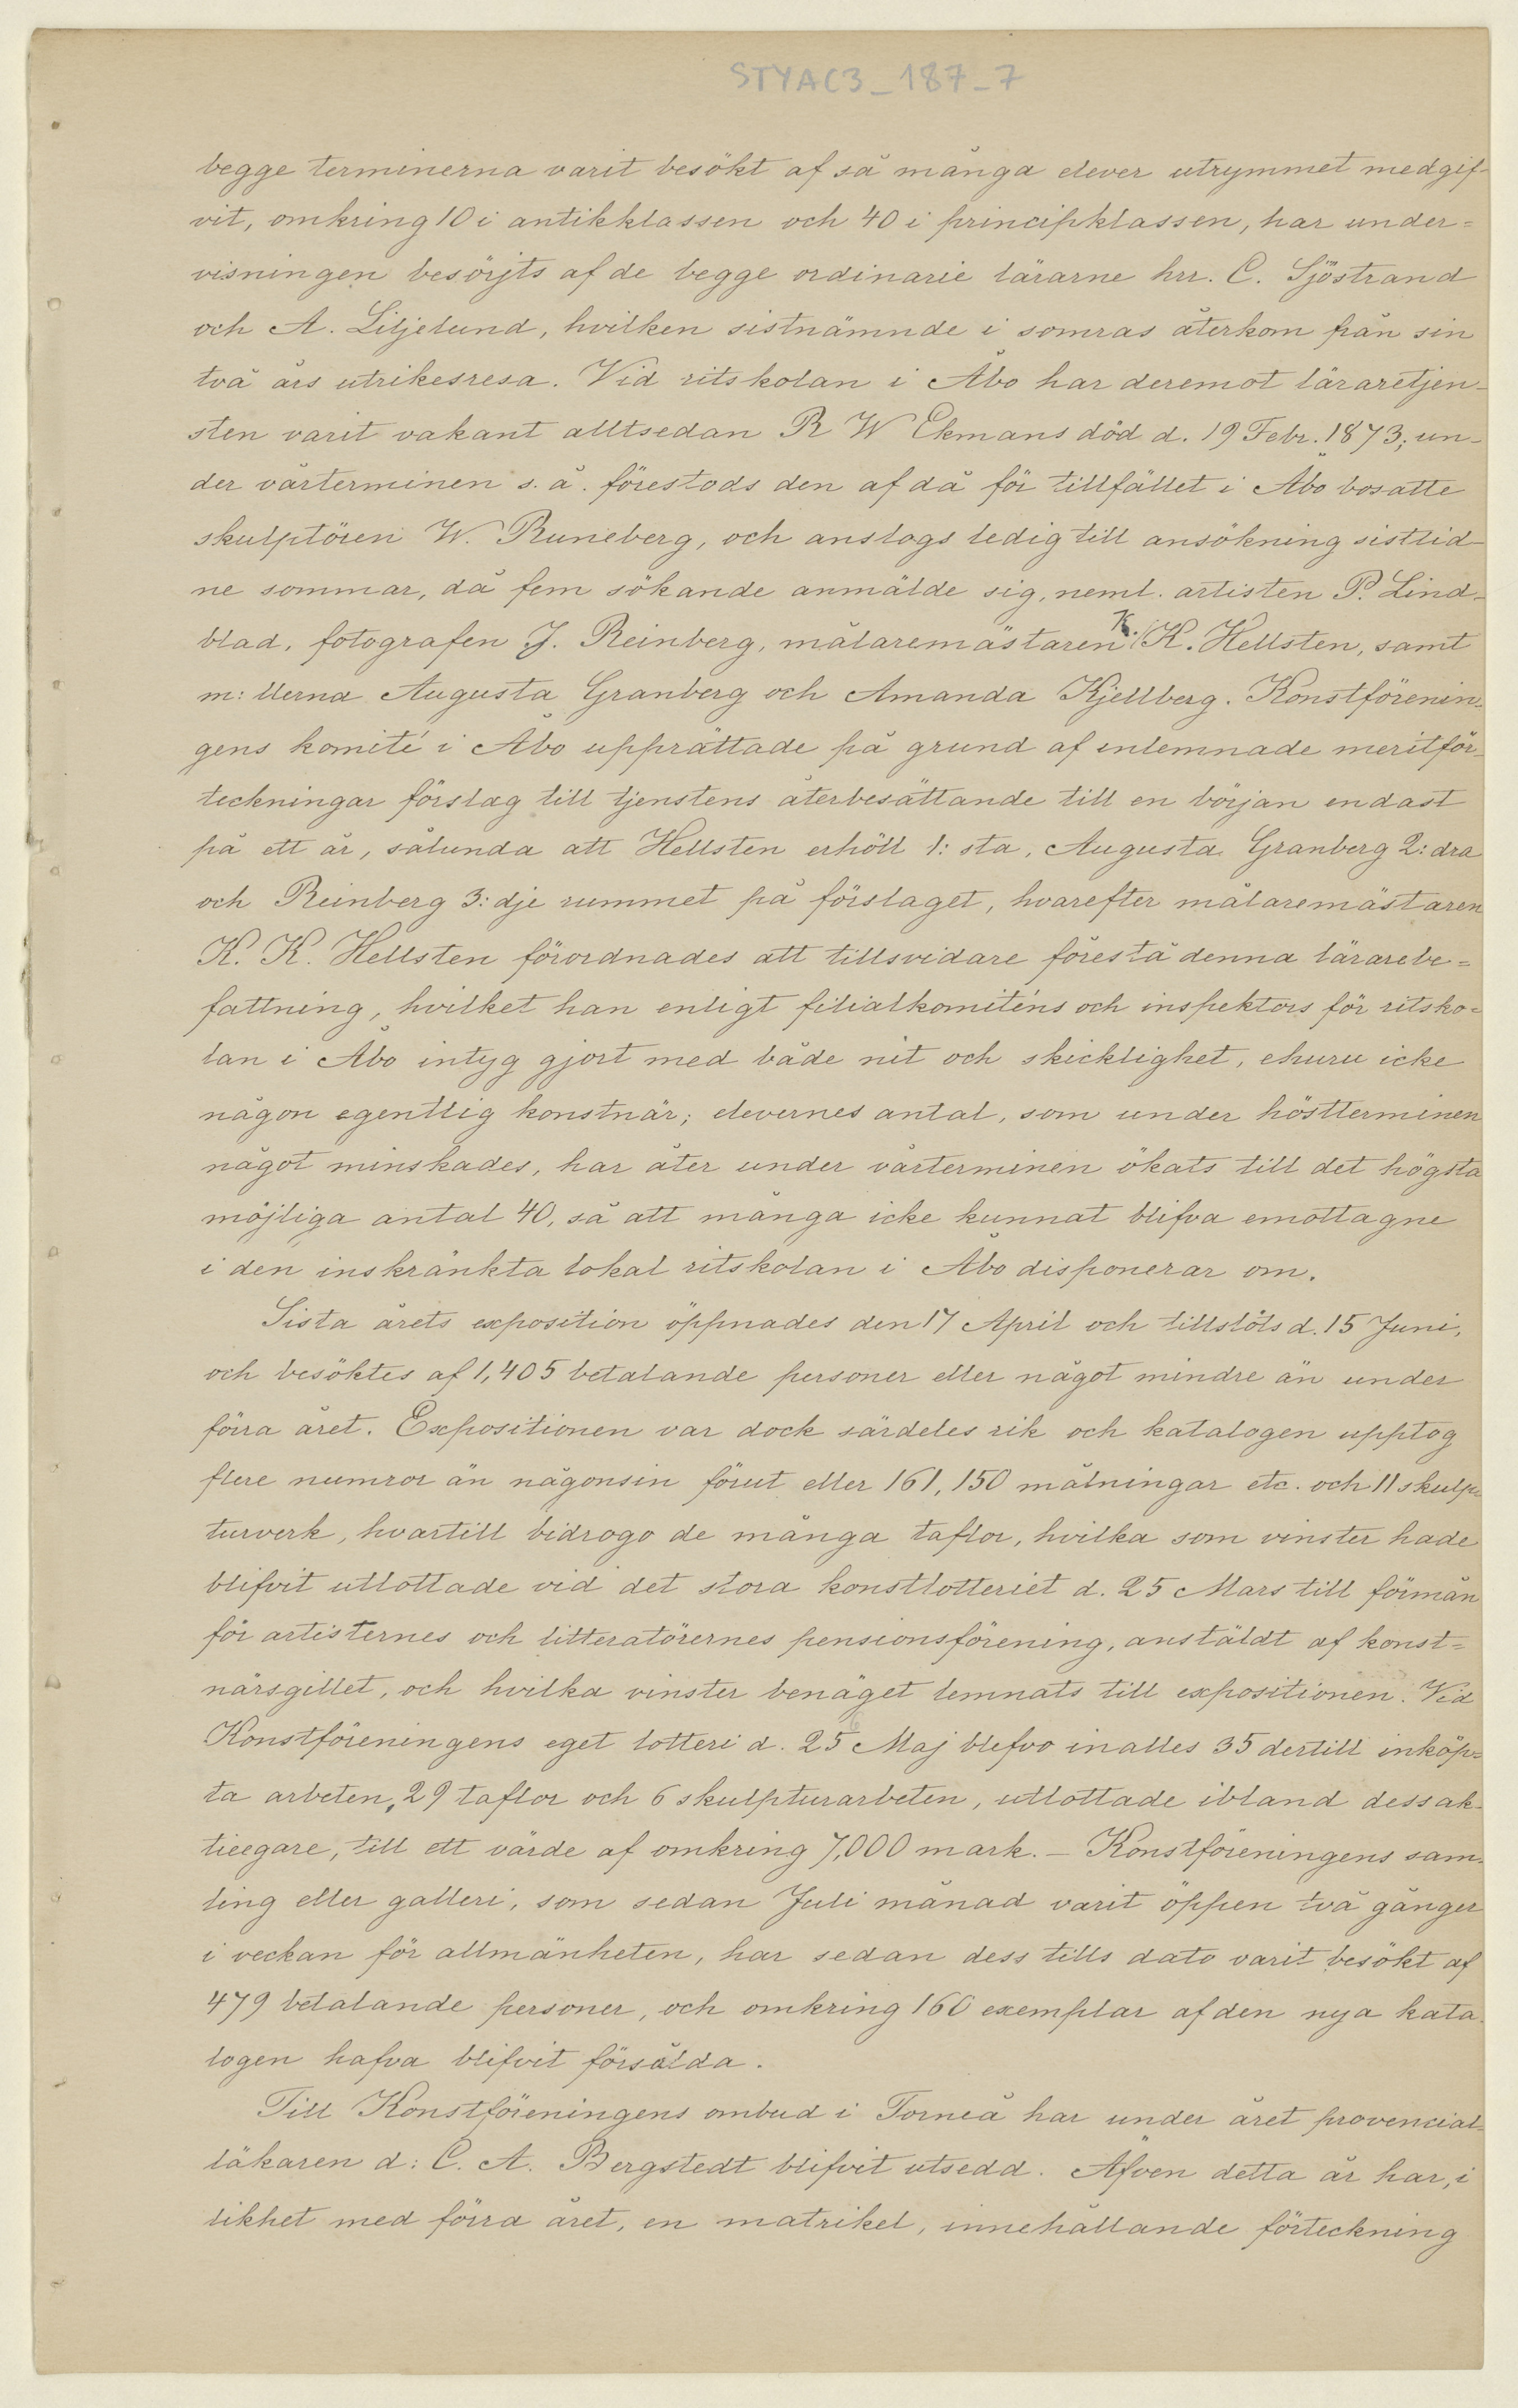 STYAC3_187_7
begge terminerna varit besökt af så många elever utrymmet medgif-
vit, omkring 10 i antikklassen och 40 i principklassen, har under=
visningen besörjts af de begge ordinarie lärarne hrr. C. Sjöstrand
och A. Liljelund, hvilken sistnämnde i somras återkom från sin
två års utrikesresa. Vid ritskolan i Åbo har deremot läraretjen-
sten varit vakant alltsedan R W Ekmans död d. 19 Febr. 1873; un-
der vårterminen s. å. förestods den af då för tillfället i Åbo bosatte
skulptören W. Runeberg, och anslogs ledig till ansökning sistlid-
ne sommar, då fem sökande anmälde sig, neml. artisten P. Lind-
blad, fotografen J. Reinberg, målaremästaren K. K. Hellsten, samt
m:llerna Augusta Granberg och Amanda Kjellberg. Konstförenin-
gens komité i Åbo upprättade på grund af inlemnade meritför-
teckningar förslag till tjenstens återbesättande till en början endast
på ett år, sålunda att Hellsten erhöll 1:sta, Augusta Granberg 2:dra
och Reinberg 3:dje rummet på förslaget, hvarefter målaremästaren
K. K. Hellsten förordnades att tillsvidare förestå denna lärarebe=
fattning, hvilket han enligt filialkomiténs och inspektors för ritsko=
lan i Åbo intyg gjort med både nit och skicklighet, ehuru icke
någon egentlig konstnär; elevernes antal, som under höstterminen
något minskades, har åter under vårterminen ökats till det högsta
möjliga antal 40, så att många icke kunnat blifva emottagne
i den inskränkta lokal ritskolan i Åbo disponerar om.
Sista årets exposition öppnades den 17 April och tillslöts d. 15 Juni,
och besöktes af 1,405 betalande personer eller något mindre än under
förra året. Expositionen var dock särdeles rik och katalogen upptog
flere numror än någonsin förut eller 161, 150 målningar etc. och 11 skulp-
turverk, hvartill bidrogo de många taflor, hvilka som vinster hade
blifvit utlottade vid det stora konstlotteriet d. 25 Mars till förmån
för artisternes och litteratörernes pensionsförening, anstäldt af konst=
närsgillet, och hvilka vinster benäget lemnats till expositionen. Vid
Konstföreningens eget lotteri d. 25 Maj blefvo inalles 35 dertill inköp=
ta arbeten, 29 taflor och 6 skulpturarbeten, utlottade ibland dess ak-
tieegare, till ett värde af omkring 7,000 mark. – Konstföreningens sam-
ling eller galleri, som sedan Juli månad varit öppen två gånger
i veckan för allmänheten, har sedan dess tills dato varit besökt af
479 betalande personer, och omkring 160 exemplar af den nya kata-
logen hafva blifvit försålda.
Till Konstföreningens ombud i Torneå har under året provencial-
läkaren d: C. A. Bergstedt blifvit utsedd. Äfven detta år har, i
likhet med förra året, en matrikel, innehållande förteckning